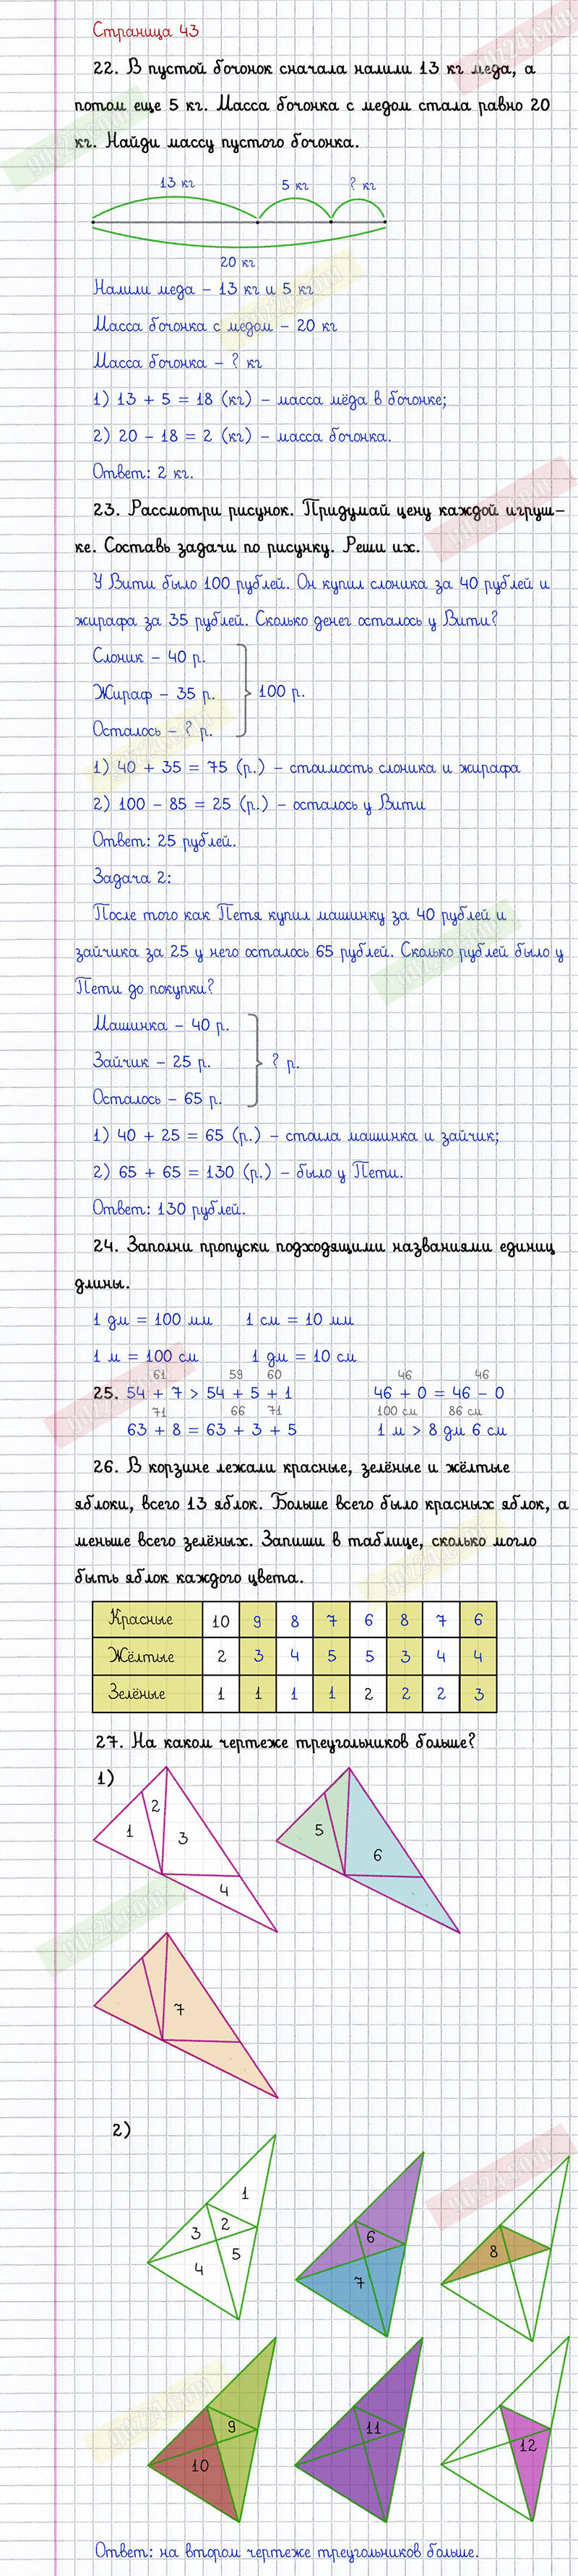 Страница 43
22. В пустой бочонок сначала налили 13 кг меда, а
потом еще 5 кг. Масса бочонка с медом стала равно 20
кг. Найди массу пустого бочонка.
13 кг 5 кг ? кг
20 кг
Налили меда – 13 кг и 5 кг
Масса бочонка с медом – 20 кг
Масса бочонка – ? кг
1) 13 + 5 = 18 (кг) – масса мёда в бочонке;
2) 20 – 18 = 2 (кг) – масса бочонка.
Ответ: 2 кг.
23. Рассмотри рисунок. Придумай цену каждой игруш-
ке. Составь задачи по рисунку. Реши их.
У Вити было 100 рублей. Он купил слоника за 40 рублей и
жирафа за 35 рублей. Сколько денег осталось у Вити?
Слоник – 40 р.
Жираф – 35 р. 100 р.
Осталось – ? р.
1) 40 + 35 = 75 (р.) – стоимость слоника и жирафа
2) 100 – 85 = 25 (р.) – осталось у Вити
Ответ: 25 рублей.
Задача 2:
После того как Петя купил машинку за 40 рублей и
зайчика за 25 у него осталось 65 рублей. Сколько рублей было у
Пети до покупки?
Машинка – 40 р.
Зайчик – 25 р. ? р.
Осталось – 65 р.
1) 40 + 25 = 65 (р.) – стоила машинка и зайчик;
2) 65 + 65 = 130 (р.) – было у Пети.
Ответ: 130 рублей.
24. Заполни пропуски подходящими названиями единиц
длины.
1 дм = 100 мм 1 см = 10 мм
1 м = 100 см 1 дм = 10 см
61 59 60 46 46
25. 54 + 7 > 54 + 5 + 1 46 + 0 = 46 – 0
71 66 71 100 см 86 см
63 + 8 = 63 + 3 + 5 1 м > 8 дм 6 см
26. В корзине лежали красные, зелёные и жёлтые
яблоки, всего 13 яблок. Больше всего было красных яблок, а
меньше всего зелёных. Запиши в таблице, сколько могло
быть яблок каждого цвета.
Красные 10 9 8 7 6 8 7 6
Жёлтые 2 3 4 5 5 3 4 4
Зелёные 1 1 1 1 2 2 2 3
27. На каком чертеже треугольников больше?
1)
1 2 3 4 5 6
7
2)
1 2 3 4 5 6 7 8
9 10 11 12
Ответ: на втором чертеже треугольников больше.